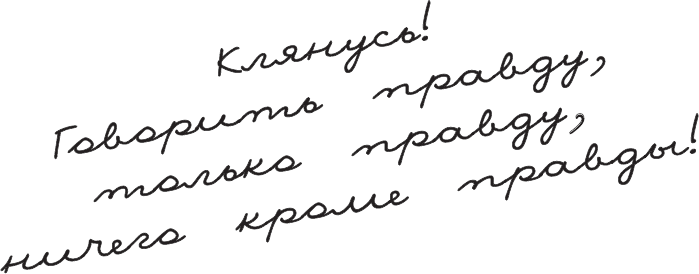 Клянусь!
Говорить правду,
только правду,
ничего кроме правды!